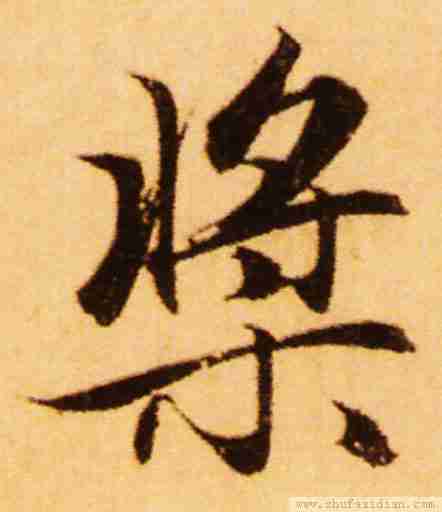 槳
www.shufazidian.com